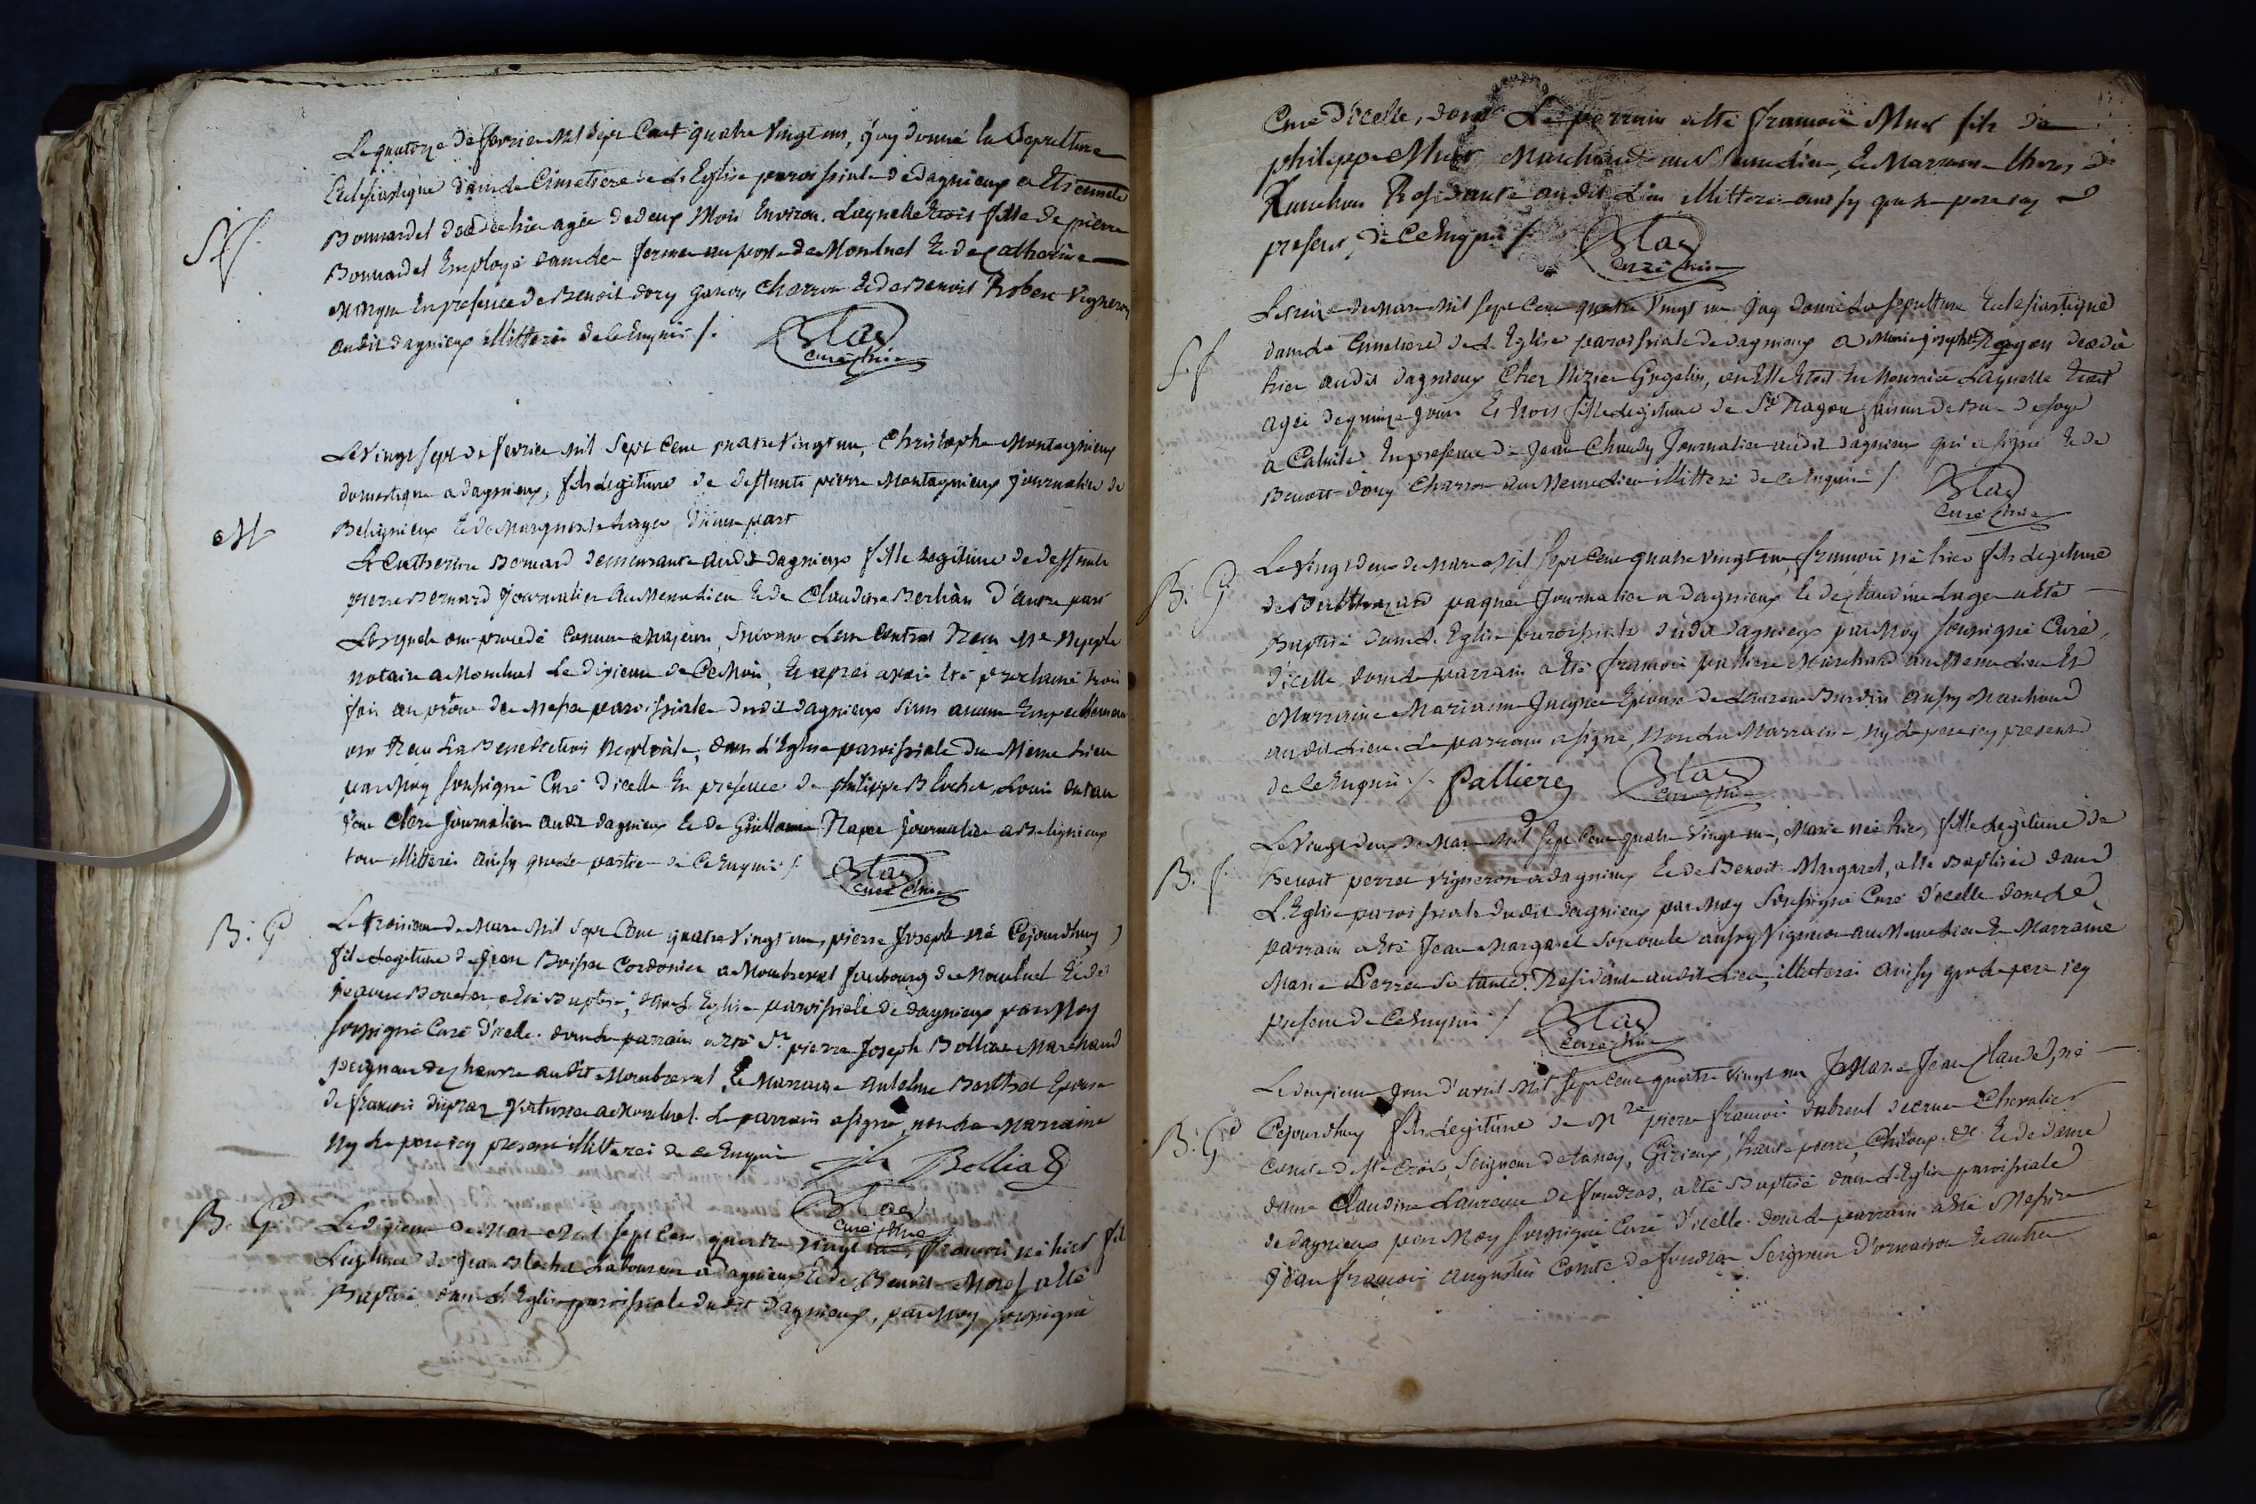 S. f.
Le quatorze de fevrier Mil Sept Cent quatre Vingt un, J'ay donné la Sepulture
Eclesiastique dans le Cimetiere de L'Eglise paroissiale de dagnieux a Etiennete
Bonnardel decedée hier agée de deux Mois Environ. Laquelle Etoit fille de pierre
Bonnardel Employé dans les fermes au poste de Montluel Et de Catherine
En presence de Benoit dory Charron Et de Benoit Rober Vigneron
audit dagnieux illitterés de ce Enquis /.
Blad
curé
M
Le Vingt sept de fevrier Mil Sept Cent quatre Vingt un, Christophe Montagnieux
domestique a dagnieux, fils Legitime de deffunts pierre Montagnieux journalier de
Beligneux Et de Marguerite d'une part
Et Catherine Bernard demeurante audit dagnieux fille Legitime de deffunts
pierre Bernard Journalier au Meme Lieu Et de Claudine Berlian d'autre part
Lesquels ont procedé comme Majeurs, Suivant Leur Contrat Recu Me
notaire a Montluel Le dixieme de Ce Mois, Et apres avoir Eté proclamé trois
fois au prône des Messes paroissiales dudit dagnieux Sans aucun Empechement
ont Recu La Benediction Nuptiale, dans L'Eglise paroissiale du Meme Lieu
par Moy soussigné Curé d'icelle En presence de philippe Blochet, Louis
Journalier audit dagnieux Et de Guillaume Journalier a Beligneux
tous illitterés aussy que les parties de ce Enquis /.
Blad
curé
B. G
Le troisieme de Mars Mil Sept Cent quatre Vingt un, pierre Joseph né Cejourdhuy
fils Legitime de Jean Boisson Cordonier a Montbreval fauxbourg de Montluel Et de
Jeanne a Eté Baptisé, dans L'Eglise paroissiale de dagnieux par Moy
soussigné Curé d'icelle. dont Le parrain a Eté Sr. pierre Joseph Marchand
peigneur de chanvre audit Montbreval, Et Marraine Anthelme Epouse
de francois dupraz a Montluel. Le parrain a signé, non La Marraine
Ny Le pere icy present illitterés de ce Enquis
Blad
curé
B. G
Le dixieme de Mars Mil Sept Cent quatre Vingt un, francois né hier fils
Legitime de Jean Blochet Laboureur a dagnieux Et de Benoite Morel a Eté
Baptisé dans L'Eglise paroissiale dudit dagnieux, par Moy soussigné
Curé d'icelle, dont Le parrain a Eté francois Mur fils de
philippe Mur Marchand au Meme Lieu, Et Marraine
Residante audit Lieu illitterés aussy que Le pere icy
present, de ce Enquis /.
Blad
curé
S. f
Le de Mars Mil sept Cent quatre Vingt un Jay donné La sepulture Eclesiastique
dans Le Cimetiere de L'Eglise paroissiale de dagnieux a Marie josephte decedée
hier audit dagnieux Chez Nizier Gugelin, ou Elle Etoit En Nourrice Laquelle Etoit
agée de quinze jours Et Etoit fille Legitime de Sr faiseur de Bas de soye
a En presence de Jean Journalier audit dagnieux qui a signé Et de
Benoit dory Charron au Meme Lieu illitteré de ce Enquis /.
Blad
curé
B. G
Le Vingt deux de Mars Mil Sept Cent quatre Vingt un, francois né hier fils Legitime
de Balthazard pagnon Journalier a dagnieux Et de Claudine a Eté
Baptisé dans L'Eglise paroissiale dudit dagnieux par Moy soussigné Curé,
d'icelle dont Le parrain a Eté francois palliere Marchand au Meme Lieu Et
Marraine Marianne Epouse de Burdin aussy Marchand
audit Lieu. Le parrain a signé, Non La Marraine, ny Le pere icy present
de ce Enquis /. Palliere
Blad
curé
B. f.
Le Vingt deux de Mars Mil Sept Cent quatre Vingt un, Marie née hier, fille Legitime de
Benoit perret Vigneron a dagnieux Et de Benoit Margaret, a Eté Baptisée dans
L'Eglise paroissiale dudit dagnieux par Moy Soussigné Curé d'icelle dont Le
parrain a Eté Jean Margaret son oncle aussy Vigneron au Meme Lieu Et Marraine
Marie Perret Sa tante, Residante audit Lieu, illitterés aussy que Le pere icy
present de ce Enquis /.
Blad
curé
B. G
Le deuxieme Jour d'avril Mil Sept Cent quatre Vingt un Marie Jean Claude, né
Cejourdhuy fils Legitime de Mre pierre francois dubreul Chevalier
Comte de Ste Croix, Seigneur de tanay, Girieux, &c. Et de dame
dame Claudine Laurence de foudras, a Eté Baptisé dans L'Eglise paroissiale
de dagnieux par Moy soussigné Curé d'icelle. dont Le parrain a Eté Messire
Jean francois augustin Comte de foudras Seigneur Et autres